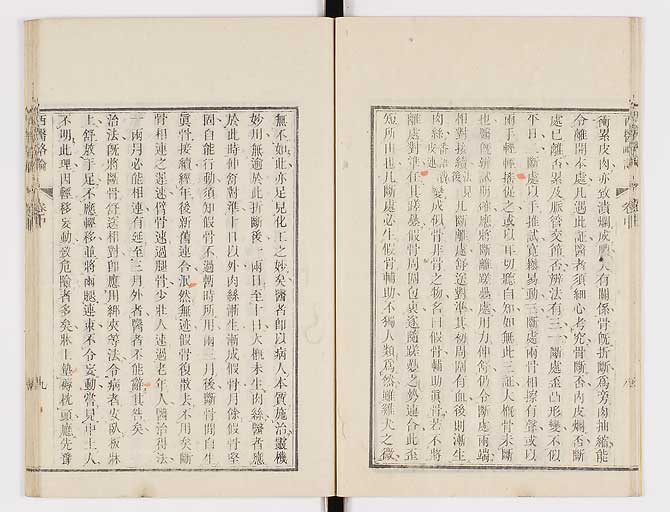 衝累皮肉亦致潰爛成膿人有關係骨旣折斷爲旁肉抽縮能
令離開本處凡遇此証醫者須細心考究骨斷否肉皮爛否斷
處已離否累及脈管交節否辨法有三一斷處歪凸形變不似
平日二斷處以手推試覺易動三斷處兩骨相擦有聲或以
兩手輕輕捺促之或以耳切聽自知如無此三証大槪骨未斷
也醫旣辨識明確應將斷離蹉疊處用力伸舒仍令斷處兩端
相對接續後凡斷離處舒送對準其初周圍有血後則漸生
肉絲變成似骨非骨之物名曰假骨輔助眞骨若不將
離處對準任其蹉疊假骨周圍包裹遂隨蹉疊之勢連合此歪
短所由也凡斷處必生假骨輔助不獨人類爲然雖雞犬之微
無不如此亦足見化工之妙矣醫者卽以病人本質施治靈機
妙用無逾於此折斷後一兩日至十日大槪未生肉絲醫者應
於此時伸衍對準十日以外肉絲漸生漸成假骨月餘假骨堅
固自能行動須知假骨不過暫時所用兩三月後斷骨間自生
眞骨接續經年後新舊連合泯然無迹假骨復散去不用矣斷
骨相連之遲速臂骨速過腿骨少壯人速過老年人醫治得法
一兩月必能相連有延至三月外者醫者不能辭其咎矣
治法旣將斷骨舒送相對卽應用綁夾等法令病者安臥板牀
上舒放手足不應輕移並將兩腿連束不令妄動嘗見中土人
不明此理因輕移妄動致危險者多矣牀上墊褥枕頭應先齊
西醫畧論
卷中
九